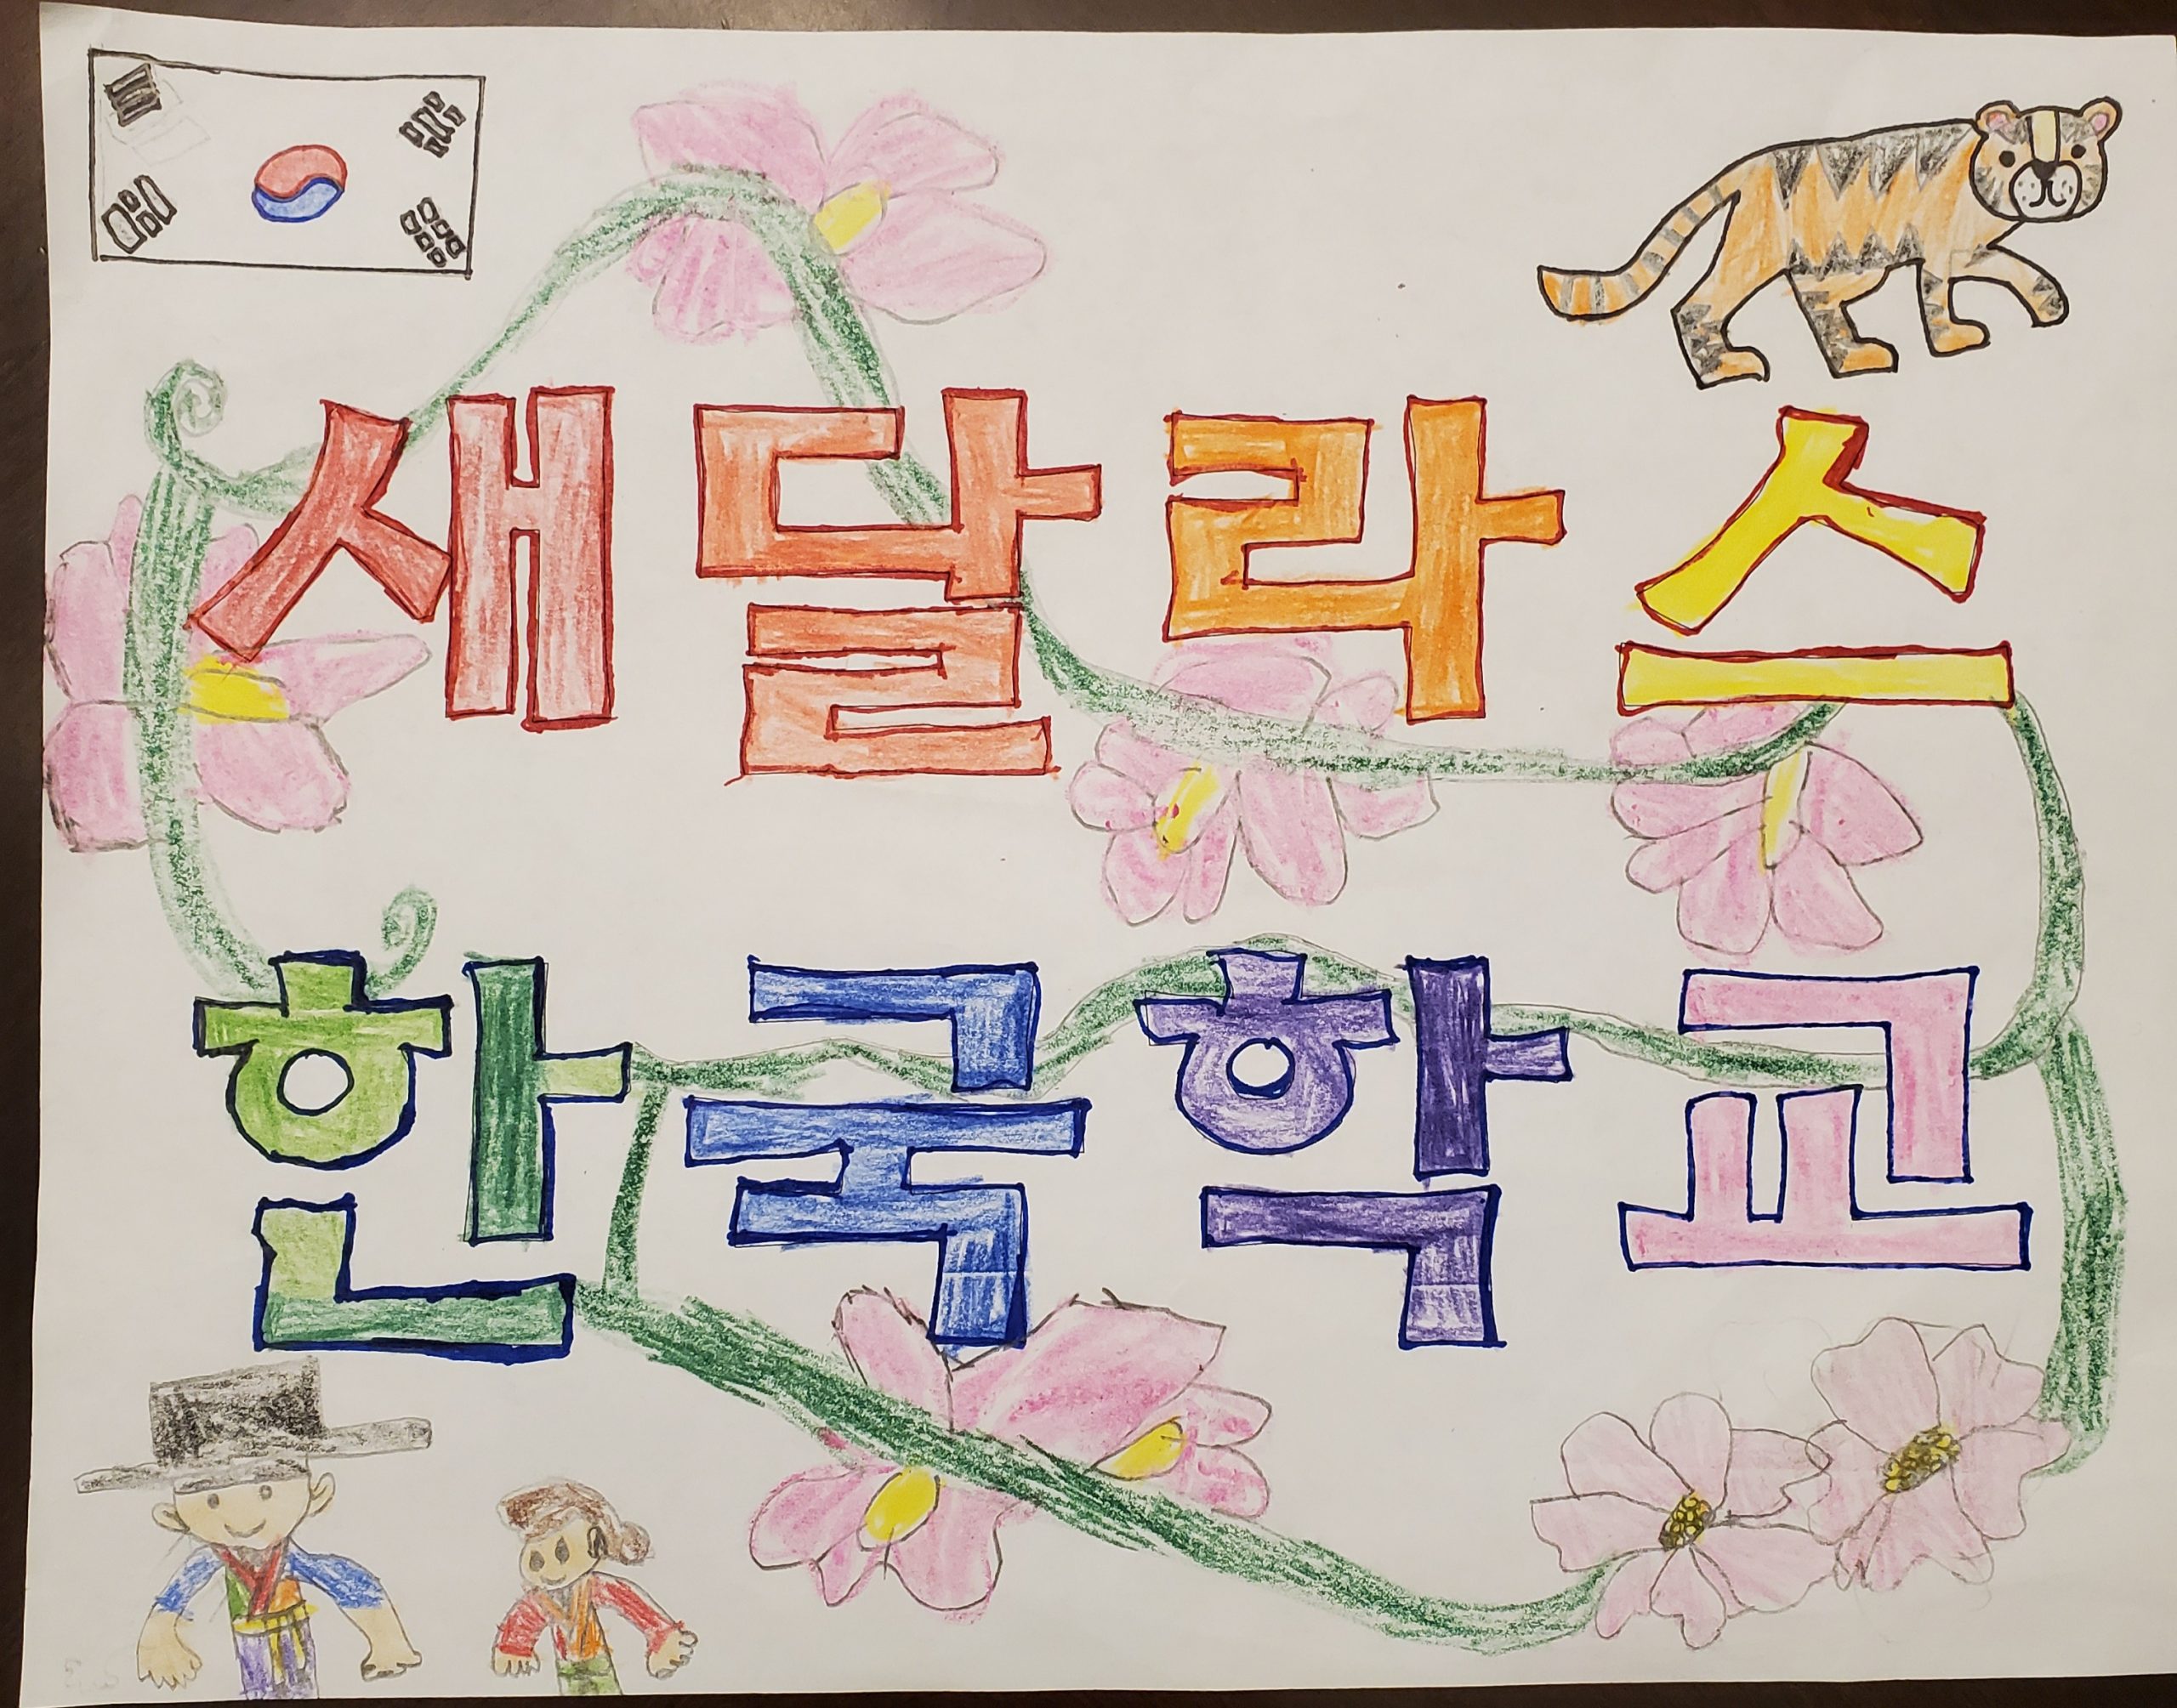 새달라스
한국학교